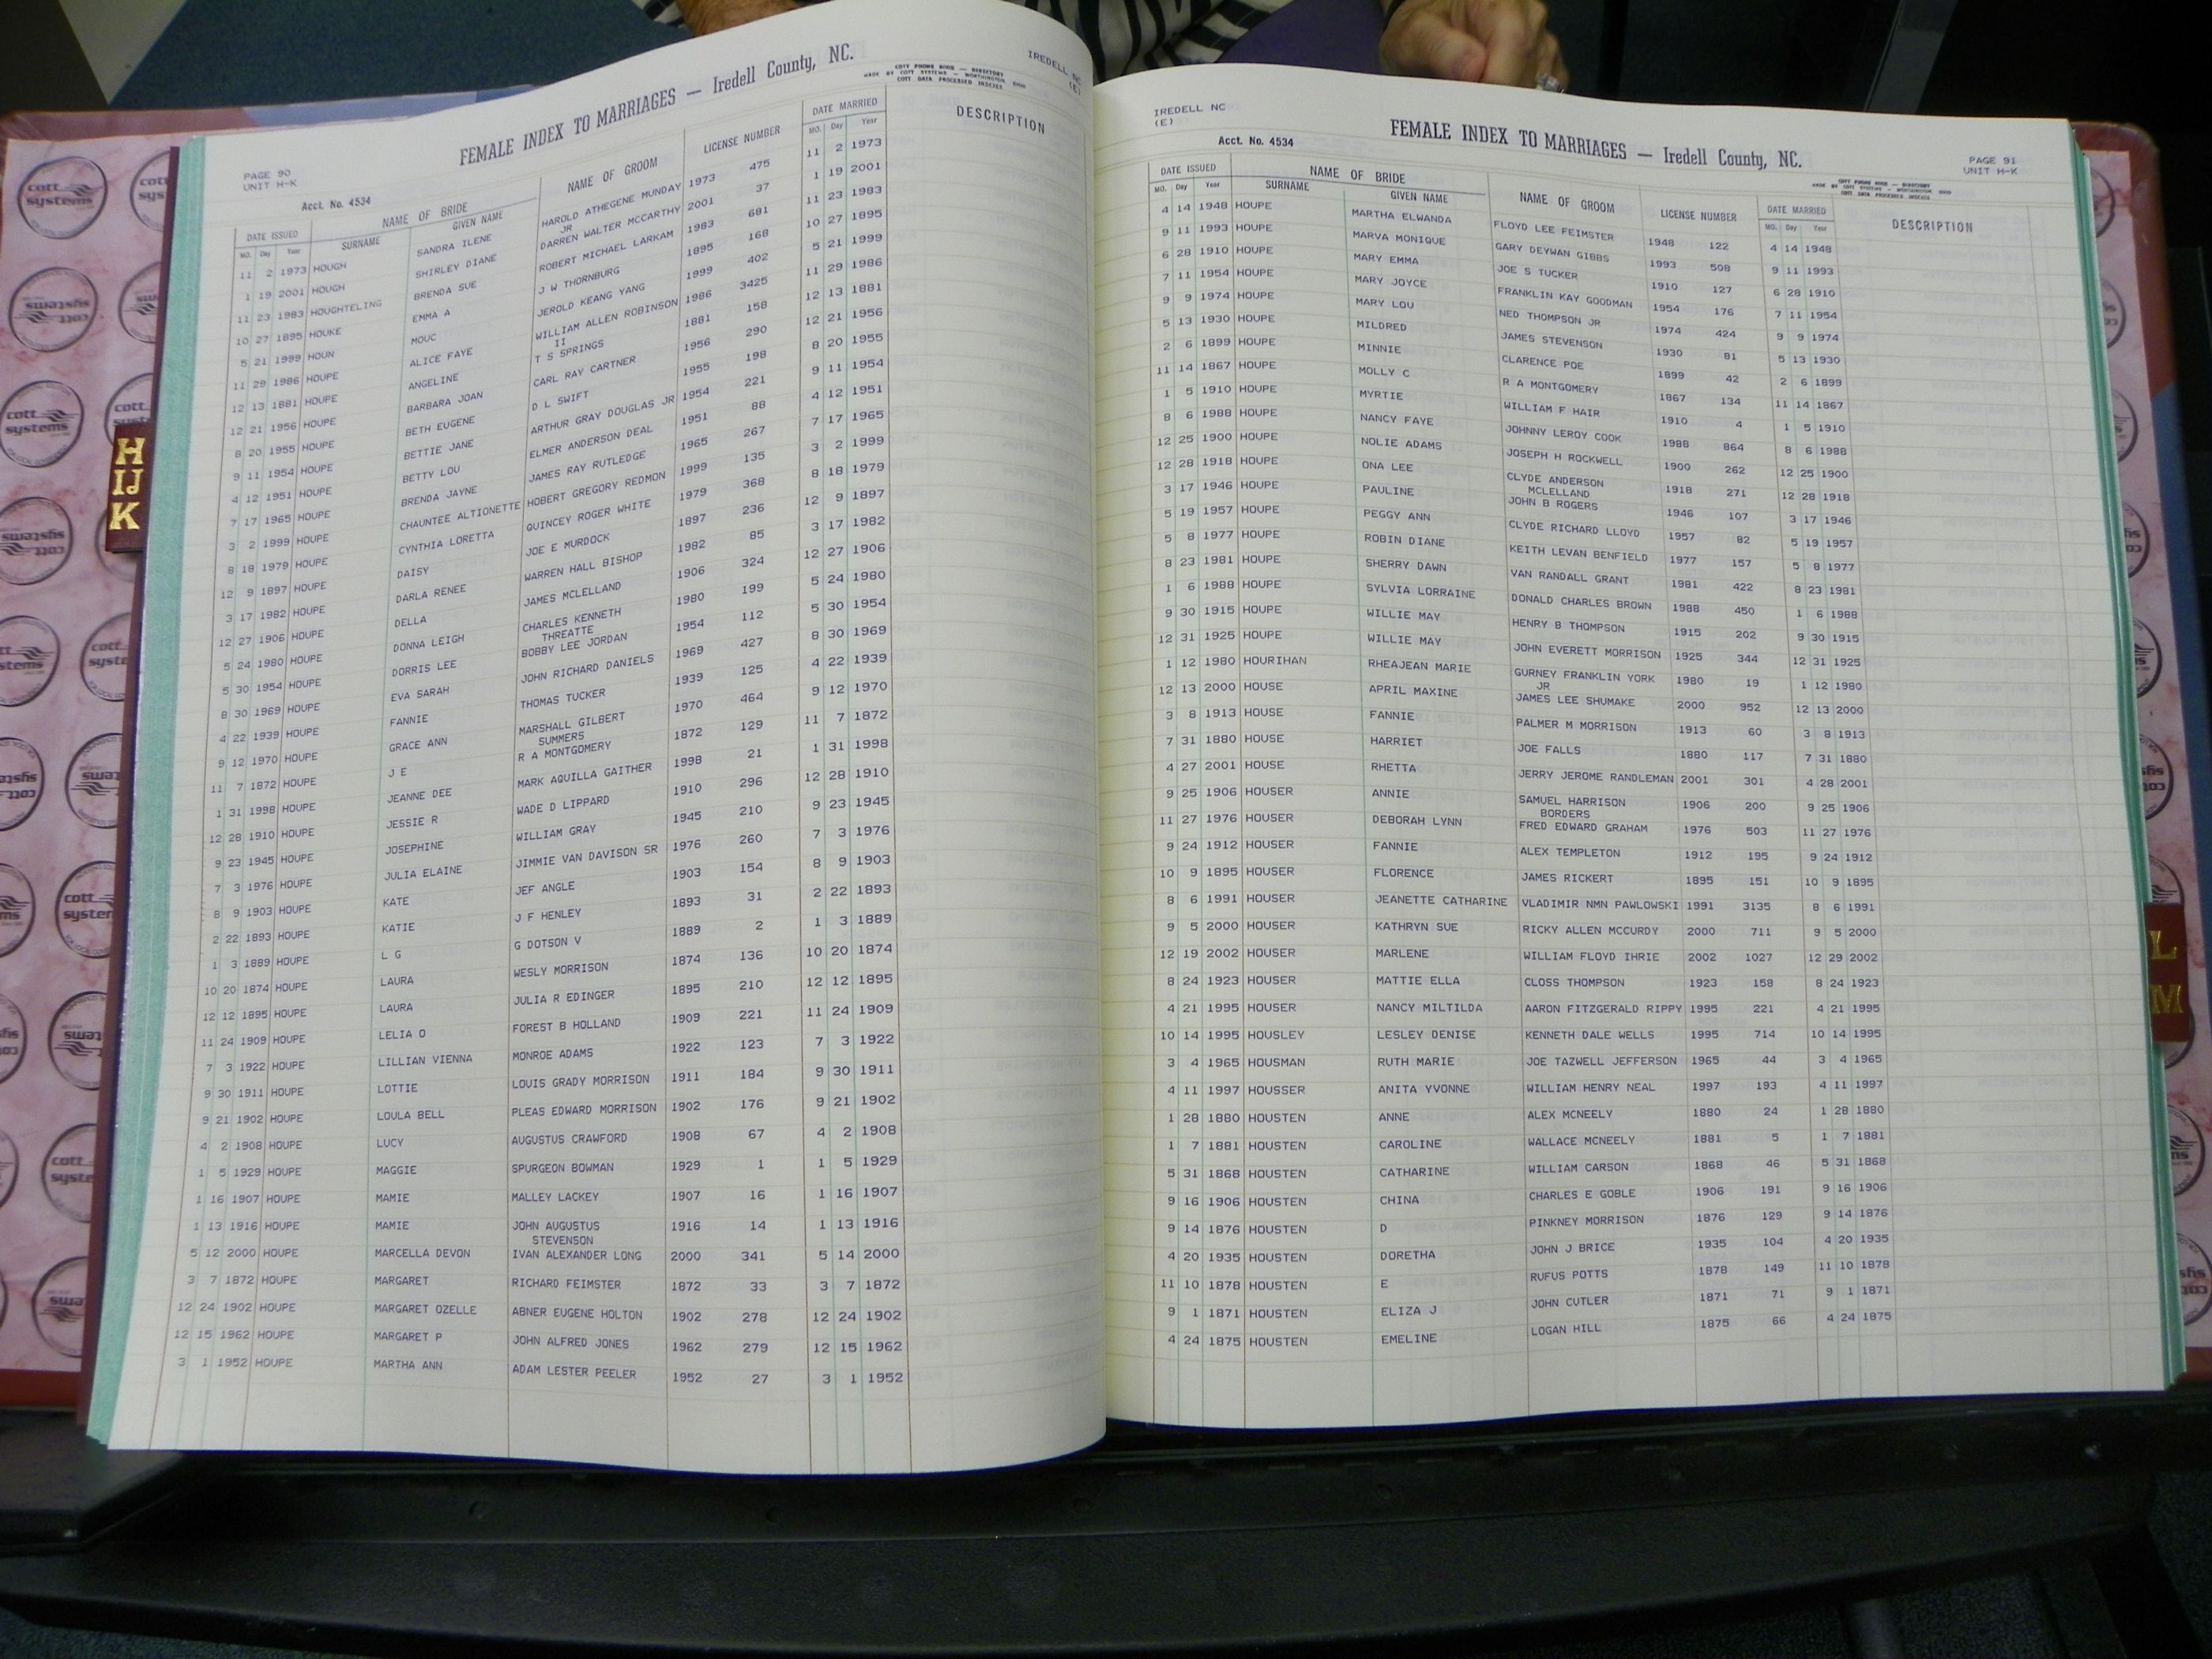 IREDELL NC
(E)
FEMALE INDEX TO MARRIAGES — Iredell County, NC.
COTT PHONE BOOK — DIRECTORY
MADE BY COTT SYSTEMS — WORTHINGTON, OHIO
COTT DATA PROCESSED INDEXES
PAGE 90
UNIT H-K
Acct. No. 4534
DATE ISSUED NAME OF BRIDE NAME OF GROOM LICENSE NUMBER DATE MARRIED DESCRIPTION
MO. Day Year SURNAME GIVEN NAME MO. Day Year
11 2 1973 HOUGH SANDRA ILENE HAROLD ATHEGENE MUNDAY 1973 475 11 2 1973
JR
1 19 2001 HOUGH SHIRLEY DIANE DARREN WALTER MCCARTHY 2001 37 1 19 2001
11 23 1983 HOUGHTELING BRENDA SUE ROBERT MICHAEL LARKAM 1983 681 11 23 1983
10 27 1895 HOUKE EMMA A J W THORNBURG 1895 168 10 27 1895
5 21 1999 HOUN MOUC JEROLD KEANG YANG 1999 402 5 21 1999
11 29 1986 HOUPE ALICE FAYE WILLIAM ALLEN ROBINSON 1986 3425 11 29 1986
II
12 13 1881 HOUPE ANGELINE T S SPRINGS 1881 158 12 13 1881
12 21 1956 HOUPE BARBARA JOAN CARL RAY CARTNER 1956 290 12 21 1956
8 20 1955 HOUPE BETH EUGENE D L SWIFT 1955 198 8 20 1955
9 11 1954 HOUPE BETTIE JANE ARTHUR GRAY DOUGLAS JR 1954 221 9 11 1954
4 12 1951 HOUPE BETTY LOU ELMER ANDERSON DEAL 1951 88 4 12 1951
7 17 1965 HOUPE BRENDA JAYNE JAMES RAY RUTLEDGE 1965 267 7 17 1965
3 2 1999 HOUPE CHAUNTEE ALTIONETTE HOBERT GREGORY REDMON 1999 135 3 2 1999
8 18 1979 HOUPE CYNTHIA LORETTA QUINCEY ROGER WHITE 1979 368 8 18 1979
12 9 1897 HOUPE DAISY JOE E MURDOCK 1897 236 12 9 1897
3 17 1982 HOUPE DARLA RENEE WARREN HALL BISHOP 1982 85 3 17 1982
12 27 1906 HOUPE DELLA JAMES MCLELLAND 1906 324 12 27 1906
5 24 1980 HOUPE DONNA LEIGH CHARLES KENNETH 1980 199 5 24 1980
THREATTE
5 30 1954 HOUPE DORRIS LEE BOBBY LEE JORDAN 1954 112 5 30 1954
8 30 1969 HOUPE EVA SARAH JOHN RICHARD DANIELS 1969 427 8 30 1969
4 22 1939 HOUPE FANNIE THOMAS TUCKER 1939 125 4 22 1939
9 12 1970 HOUPE GRACE ANN MARSHALL GILBERT 1970 464 9 12 1970
SUMMERS
11 7 1872 HOUPE J E R A MONTGOMERY 1872 129 11 7 1872
1 31 1998 HOUPE JEANNE DEE MARK AQUILLA GAITHER 1998 21 1 31 1998
12 28 1910 HOUPE JESSIE R WADE D LIPPARD 1910 296 12 28 1910
9 23 1945 HOUPE JOSEPHINE WILLIAM GRAY 1945 210 9 23 1945
7 3 1976 HOUPE JULIA ELAINE JIMMIE VAN DAVISON SR 1976 260 7 3 1976
8 9 1903 HOUPE KATE JEF ANGLE 1903 154 8 9 1903
2 22 1893 HOUPE KATIE J F HENLEY 1893 31 2 22 1893
1 3 1889 HOUPE L G G DOTSON V 1889 2 1 3 1889
10 20 1874 HOUPE LAURA WESLY MORRISON 1874 136 10 20 1874
12 12 1895 HOUPE LAURA JULIA R EDINGER 1895 210 12 12 1895
11 24 1909 HOUPE LELIA O FOREST B HOLLAND 1909 221 11 24 1909
7 3 1922 HOUPE LILLIAN VIENNA MONROE ADAMS 1922 123 7 3 1922
9 30 1911 HOUPE LOTTIE LOUIS GRADY MORRISON 1911 184 9 30 1911
9 21 1902 HOUPE LOULA BELL PLEAS EDWARD MORRISON 1902 176 9 21 1902
4 2 1908 HOUPE LUCY AUGUSTUS CRAWFORD 1908 67 4 2 1908
1 5 1929 HOUPE MAGGIE SPURGEON BOWMAN 1929 1 1 5 1929
1 16 1907 HOUPE MAMIE MALLEY LACKEY 1907 16 1 16 1907
1 13 1916 HOUPE MAMIE JOHN AUGUSTUS 1916 14 1 13 1916
STEVENSON
5 12 2000 HOUPE MARCELLA DEVON IVAN ALEXANDER LONG 2000 341 5 14 2000
3 7 1872 HOUPE MARGARET RICHARD FEIMSTER 1872 33 3 7 1872
12 24 1902 HOUPE MARGARET OZELLE ABNER EUGENE HOLTON 1902 278 12 24 1902
12 15 1962 HOUPE MARGARET P JOHN ALFRED JONES 1962 279 12 15 1962
3 1 1952 HOUPE MARTHA ANN ADAM LESTER PEELER 1952 27 3 1 1952
IREDELL NC
(E)
Acct. No. 4534
FEMALE INDEX TO MARRIAGES — Iredell County, NC.
PAGE 91
UNIT H-K
COTT PHONE BOOK — DIRECTORY
MADE BY COTT SYSTEMS — WORTHINGTON, OHIO
COTT DATA PROCESSED INDEXES
DATE ISSUED NAME OF BRIDE NAME OF GROOM LICENSE NUMBER DATE MARRIED DESCRIPTION
MO. Day Year SURNAME GIVEN NAME MO. Day Year
4 14 1948 HOUPE MARTHA ELWANDA FLOYD LEE FEIMSTER 1948 122 4 14 1948
9 11 1993 HOUPE MARVA MONIQUE GARY DEYWAN GIBBS 1993 508 9 11 1993
6 28 1910 HOUPE MARY EMMA JOE S TUCKER 1910 127 6 28 1910
7 11 1954 HOUPE MARY JOYCE FRANKLIN KAY GOODMAN 1954 176 7 11 1954
9 9 1974 HOUPE MARY LOU NED THOMPSON JR 1974 424 9 9 1974
5 13 1930 HOUPE MILDRED JAMES STEVENSON 1930 81 5 13 1930
2 6 1899 HOUPE MINNIE CLARENCE POE 1899 42 2 6 1899
11 14 1867 HOUPE MOLLY C R A MONTGOMERY 1867 134 11 14 1867
1 5 1910 HOUPE MYRTIE WILLIAM F HAIR 1910 4 1 5 1910
8 6 1988 HOUPE NANCY FAYE JOHNNY LEROY COOK 1988 864 8 6 1988
12 25 1900 HOUPE NOLIE ADAMS JOSEPH H ROCKWELL 1900 262 12 25 1900
12 28 1918 HOUPE ONA LEE CLYDE ANDERSON 1918 271 12 28 1918
MCLELLAND
3 17 1946 HOUPE PAULINE JOHN B ROGERS 1946 107 3 17 1946
5 19 1957 HOUPE PEGGY ANN CLYDE RICHARD LLOYD 1957 82 5 19 1957
5 8 1977 HOUPE ROBIN DIANE KEITH LEVAN BENFIELD 1977 157 5 8 1977
8 23 1981 HOUPE SHERRY DAWN VAN RANDALL GRANT 1981 422 8 23 1981
1 6 1988 HOUPE SYLVIA LORRAINE DONALD CHARLES BROWN 1988 450 1 6 1988
9 30 1915 HOUPE WILLIE MAY HENRY B THOMPSON 1915 202 9 30 1915
12 31 1925 HOUPE WILLIE MAY JOHN EVERETT MORRISON 1925 344 12 31 1925
1 12 1980 HOURIHAN RHEAJEAN MARIE GURNEY FRANKLIN YORK 1980 19 1 12 1980
JR
12 13 2000 HOUSE APRIL MAXINE JAMES LEE SHUMAKE 2000 952 12 13 2000
3 8 1913 HOUSE FANNIE PALMER M MORRISON 1913 60 3 8 1913
7 31 1880 HOUSE HARRIET JOE FALLS 1880 117 7 31 1880
4 27 2001 HOUSE RHETTA JERRY JEROME RANDLEMAN 2001 301 4 28 2001
9 25 1906 HOUSER ANNIE SAMUEL HARRISON 1906 200 9 25 1906
BORDERS
11 27 1976 HOUSER DEBORAH LYNN FRED EDWARD GRAHAM 1976 503 11 27 1976
9 24 1912 HOUSER FANNIE ALEX TEMPLETON 1912 195 9 24 1912
10 9 1895 HOUSER FLORENCE JAMES RICKERT 1895 151 10 9 1895
8 6 1991 HOUSER JEANETTE CATHARINE VLADIMIR NMN PAWLOWSKI 1991 3135 8 6 1991
9 5 2000 HOUSER KATHRYN SUE RICKY ALLEN MCCURDY 2000 711 9 5 2000
12 19 2002 HOUSER MARLENE WILLIAM FLOYD IHRIE 2002 1027 12 29 2002
8 24 1923 HOUSER MATTIE ELLA CLOSS THOMPSON 1923 158 8 24 1923
4 21 1995 HOUSER NANCY MILTILDA AARON FITZGERALD RIPPY 1995 221 4 21 1995
10 14 1995 HOUSLEY LESLEY DENISE KENNETH DALE WELLS 1995 714 10 14 1995
3 4 1965 HOUSMAN RUTH MARIE JOE TAZWELL JEFFERSON 1965 44 3 4 1965
4 11 1997 HOUSSER ANITA YVONNE WILLIAM HENRY NEAL 1997 193 4 11 1997
1 28 1880 HOUSTEN ANNE ALEX MCNEELY 1880 24 1 28 1880
1 7 1881 HOUSTEN CAROLINE WALLACE MCNEELY 1881 5 1 7 1881
5 31 1868 HOUSTEN CATHARINE WILLIAM CARSON 1868 46 5 31 1868
9 16 1906 HOUSTEN CHINA CHARLES E GOBLE 1906 191 9 16 1906
9 14 1876 HOUSTEN D PINKNEY MORRISON 1876 129 9 14 1876
4 20 1935 HOUSTEN DORETHA JOHN J BRICE 1935 104 4 20 1935
11 10 1878 HOUSTEN E RUFUS POTTS 1878 149 11 10 1878
9 1 1871 HOUSTEN ELIZA J JOHN CUTLER 1871 71 9 1 1871
4 24 1875 HOUSTEN EMELINE LOGAN HILL 1875 66 4 24 1875
H
IJ
K
L
M
cott
systems